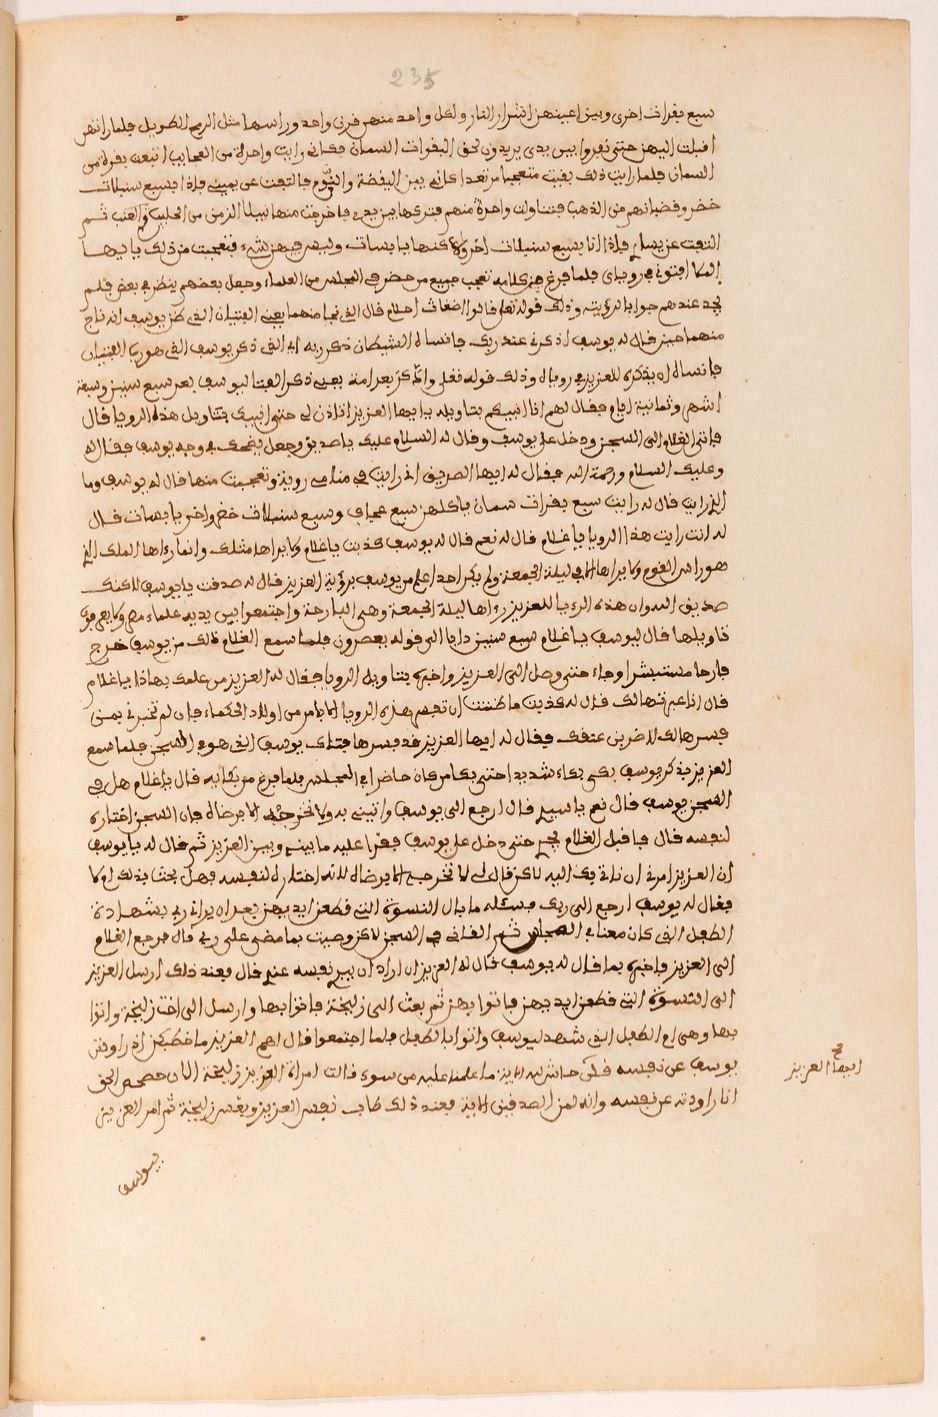 235
سبع بقرات اخرى وبين اعينهن اشرار النار ولكل واحد منهن قرن واحد وراسها مثل الرمح الطويل فلما راتهن
اقبلت اليهن حتى نفروا بين يدى يريدون لحق البقرات السمان فكانى رايت واحدة من العجايب ابتعت بقرة من
السمان فلما رايت ذلك بقيت متعجبا مرتعدا كانى بين اليقضة والنوم فالتفت عن يمينى فاذا بسبع سنبلات
خضر وقضبانهم من الذهب فتناولت واحدة منهم ففركها بين يدى فاخرجت منها لبيا الزمن من الحليب والعنب ثم
التفت عن يسارى فاذا انا بسبع سنبلات اخر ولاكنها يابسات وليس فيهن شىء فتعجبت من ذلك يا ايها
الملا افتونى فى روياى فلما فرغ من كلامه تعجب جميع من حضر فى المجلس من العلماء وجعل بعضهم ينظر فى بعض فلم
يجد عندهم جوابا لرؤيته وذلك قوله تعلى قالوا اضغاث احلام قال الذى نجا منهما يعنى الفتيان الذى ظن يوسف انه ناج
منهما حين قال له يوسف اذكرنى عند ربك فانساه الشيطان ذكر ربه اى الذى ذكر يوسف الذى هو ربا الفتيان
فانساه ان يذكره للعزيز فى روياه وذلك قوله تعلى وادكر بعد امة يعنى ذكر الفتا ليوسف بعد سبع سنين وسبعة
اشهر وثمانية ايام فقال لهم انا انبيكم بتاويله يا ايها العزيز اتاذن لى حتى اتيك بتاويل هذه الرويا قال
فاتى الغلام الى السجن ودخل على يوسف وقال له السلام عليك يا صديق وجعل يضحك فى وجه يوسف فقال له
وعليك السلام ورحمة الله فقال له ايها الصديق انى رايت فى منامى روية وتعجبت منها فال له يوسف وما
الذى رايت قال له رايت سبع بقرات سمان ياكلهن سبع عجاف وسبع سنبلات خضر واخر يابسات قال
له انت رايت هذا الرويا يا غلام قال له نعم قال له يوسف كذبت يا غلام ولا يراها مثلك وانما رءاها الملك الذى
هو راس القوم ولا يراها الا فى ليلة الجمعة ولم يكن احد اعلم من يوسف برؤية العزيز قال له صدقت يا يوسف لاكنك
صديق السوان هذه الرءيا للعزيز رءاها ليلة الجمعة وهى البارحة واجتمعوا بين يديه علماء مصر ولا يعرفون
تاويلها قال يوسف يا غلام سبع سنين دابا الى قوله يعصرون فلما سمع الغلام ذلك من يوسف خرج
فارحا مستبشرا وجاء حتى وصل الى العزيز واخبره بتاويل الرويا فقال له العزيز من علمك بهاذا يا غلام
قال انا عبرتها لك قال له كذبت ما ظننت ان تعبر بهذه الرويا الا يا من من اولاد الحكماء فان لم تخبرنى بمن
فسرها لك لاضربن عنقك فقال له ايها العزيز قد فسرها فتاى يوسف الذى هو فى السجن فلما سمع
العزيز بذكر يوسف بكى بكاء شديدا حتى بكا من كان حاضرا فى المجلس فلما فرغ من بكايه قال يا غلام هل فى
السجن يوسف قال نعم يا سيدى قال ارجع الى يوسف واتينى به ولا تخرجه الا برضاه فان السجن اختاره
لنفسه قال فاقبل الغلام يجرى حتى دخل على يوسف فقرا عليه ما بينه وبين العزيز ثم قال له يا يوسف
ان العزيز امرنى ان ناتى بك اليه لاكن قال لى لا تخرجه الا برضاه لانه اختاره لنفسه فهل يحث بذلك ام لا
فقال له يوسف ارجع الى ربك فسئله ما بال النسوة التى قطعن ايديهن بعد ان يرانى ربى بشهادة
الطفل الذى كان معنا فى المجلس ثم القانى فى السجن لاكن وصيت بما مضى على ربى قال فرجع الغلام
الى العزيز فاخبره بما قال له يوسف قال له العزيز ان اراد ان يبرى نفسه عنى قال فعند ذلك ارسل العزيز
الى النسوة التى قطعن ايديهن فاتوا بهن ثم بعث الى زليخة فاتوا بها وارسل الى اخت زليخة واتوا
بها وهى ام الطفل الذى شهد ليوسف واتوا بالطفل فلما اجتمعوا قال لهم العزيز ما خطبكن اذ راودتن
يوسف عن نفسه قلن حاش لله الاية ما علمنا عليه من سوء قالت امراة العزيز زليخة الان حصحص الحق
انا راودته عن نفسه وانه لمن الصدقين الاية فعند ذلك طاب نفس العزيز ونفس زليخة ثم امر العزيز
ايضا العزيز
بيوسف